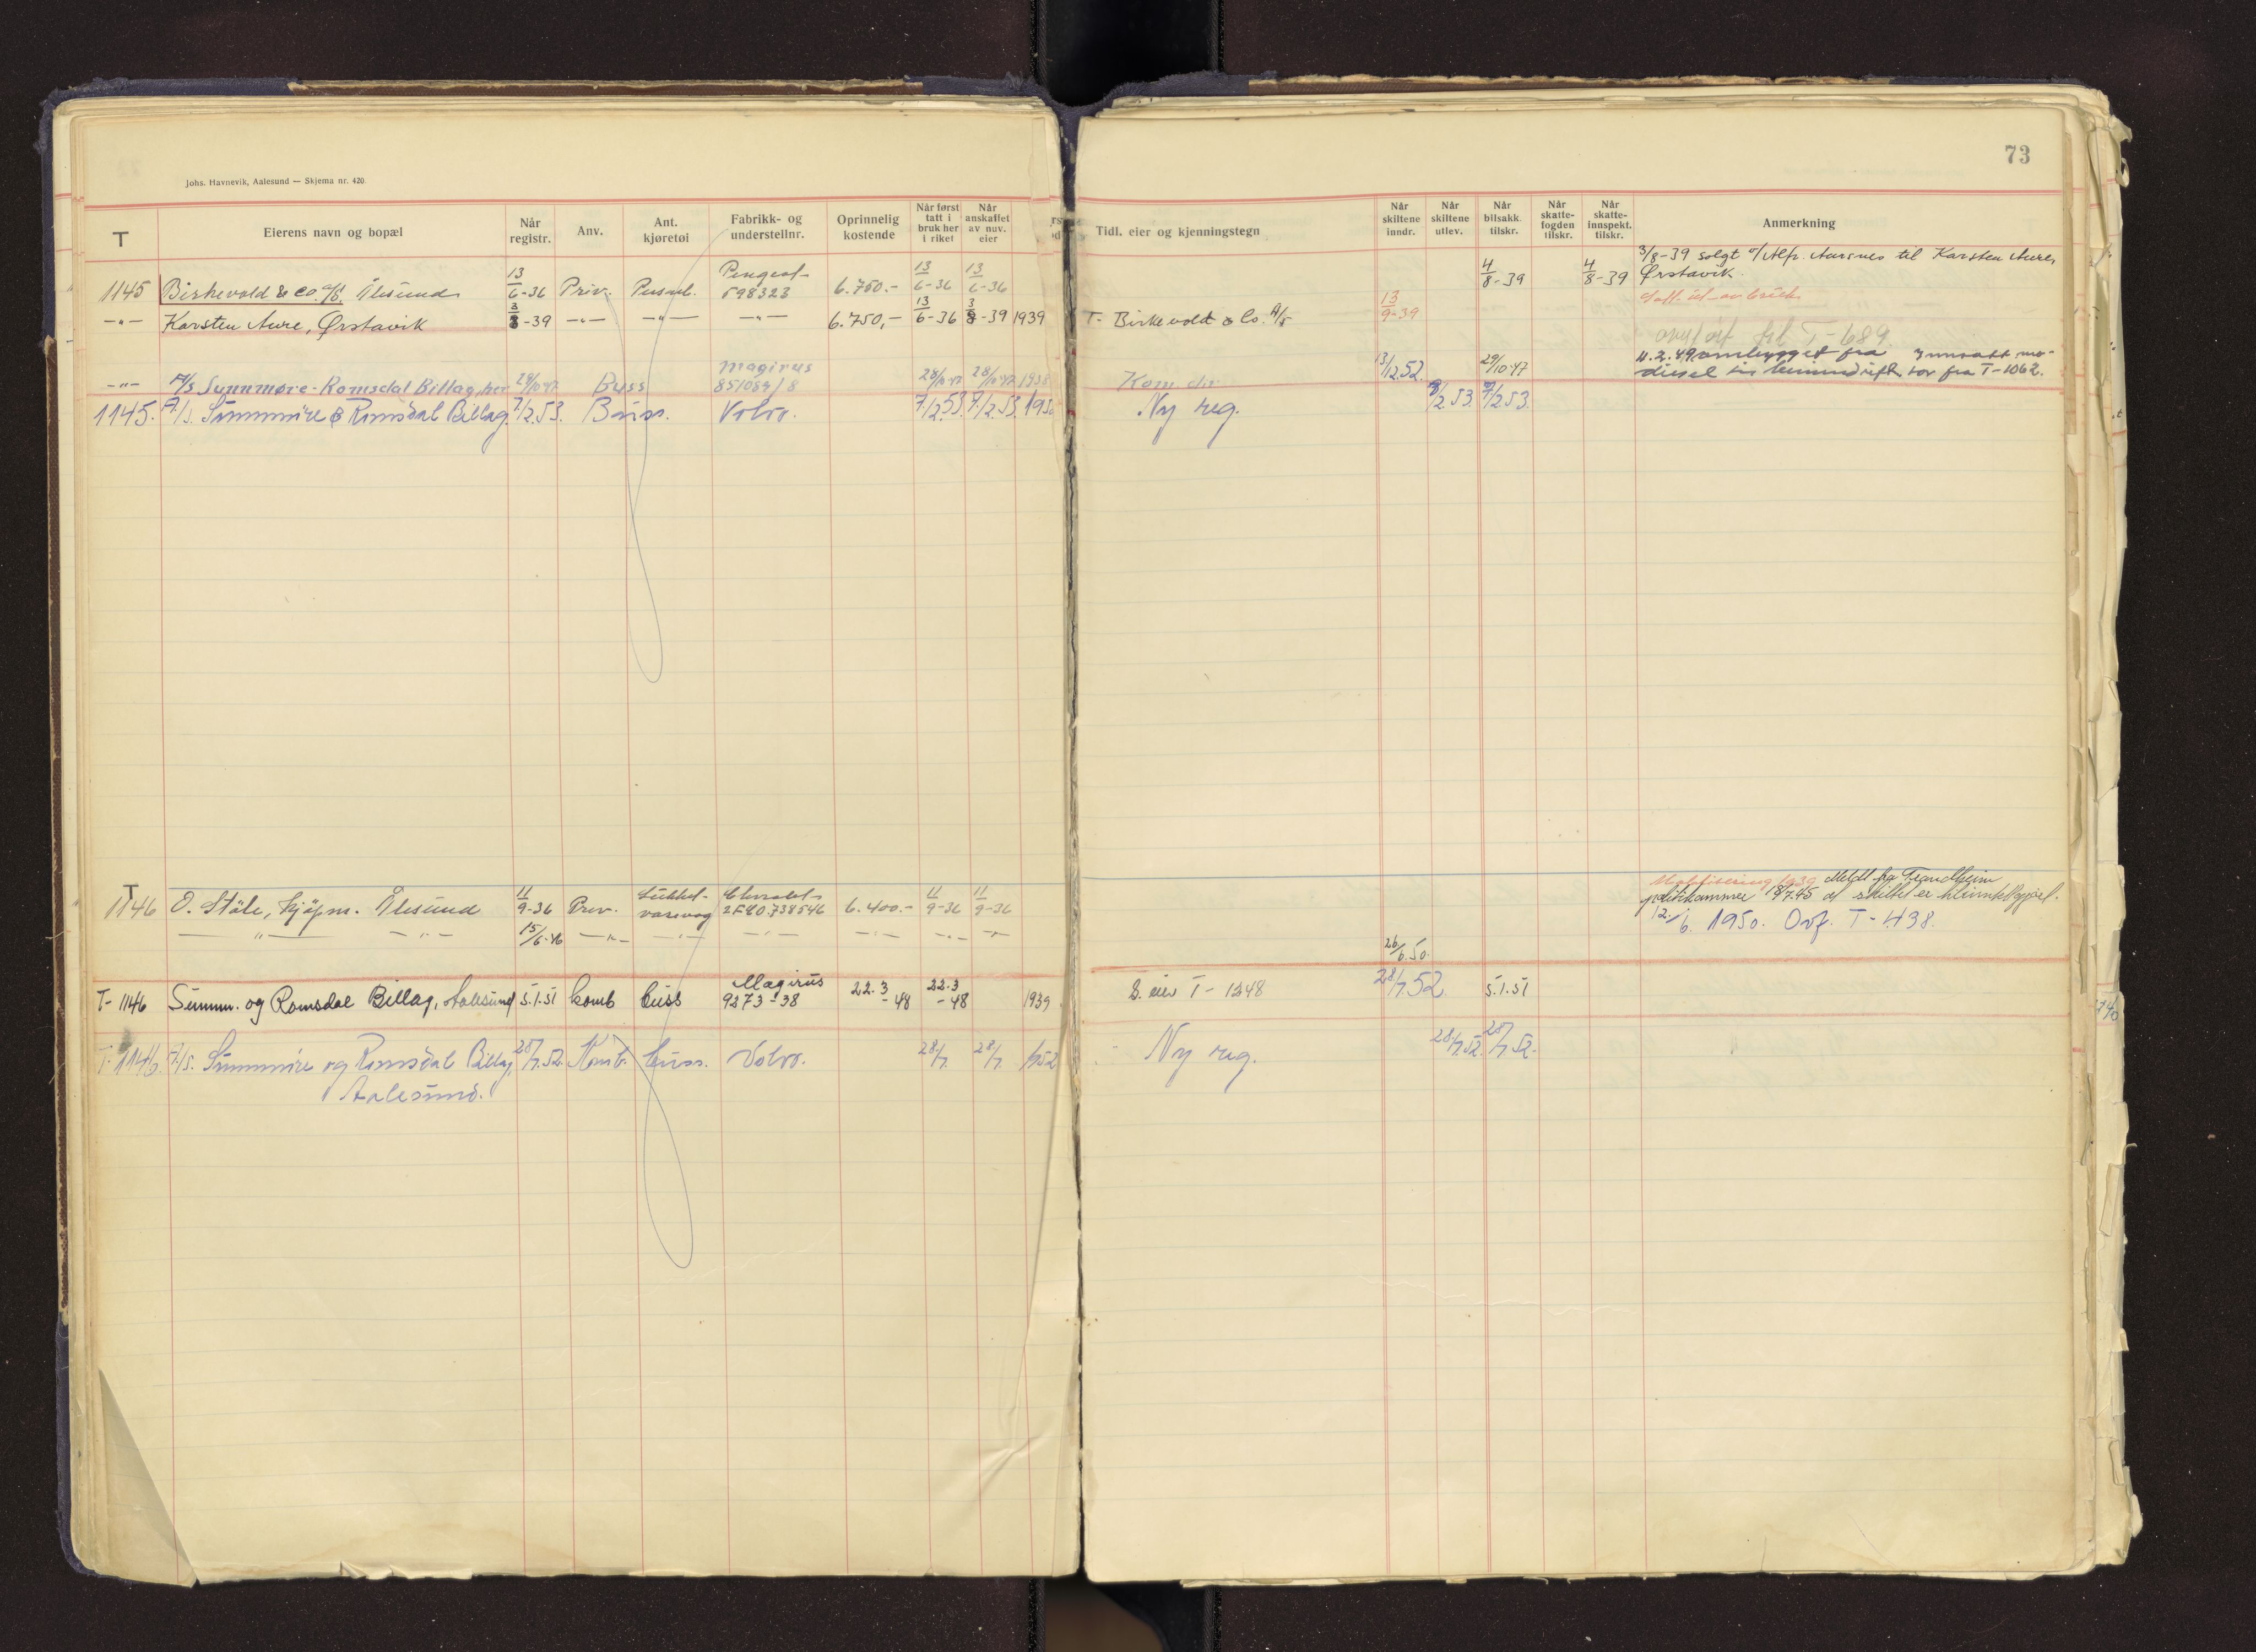 73
Johs. Havnevik, Aalesund — Skjema nr. 420
T
Eierens navn og bopæl
Når registr.
Anv.
Ant. kjøretøi
Fabrikk- og understellnr.
Oprinnelig kostende
Når først tatt i bruk her i riket
Når anskaffet av nuv. eier
Tidl. eier og kjenningstegn
Når skiltene inndr.
Når skiltene utlev.
Når bilsakk. tilskr.
Når skattefogden tilskr.
Når skatteinnspekt. tilskr.
Anmerkning
1145 Birkevold & Co. a/s. Ålesund 13/6-36 Priv. Personb. 598323 6.750.- 13/6-36 13/6-36 4/8-39 4/8-39 3/8-39 solgt til Karsten Aure, Ørstavik.
-"- Karsten Aure, Ørstavik 3/8-39 -"- -"- -"- 6.750,- 13/6-36 3/8-39 1939 T- Birkevold & Co. A/s 13/9-39
overført til T-689
-"- A/s Sunnmøre-Romsdal Billag, her 28/10-47 Buss Magirus 851089/8 28/10-47 28/10-47 1938 13/12.52. 29/10-47 11.2.49 ombygget fra
diesel for fra T-1062.
1145. A/s. Sunnmøre & Romsdal Billag. 7/2.53. Buss. Volvo. 7/2.53. 7/2.53. 195 Ny reg. 7/2.53. 7/2.53.
1146 O. Ståle, kjøpm. Ålesund 11/9-36 Priv. Lukket varevog Chevrolet 2FR0.738546 6.400.- 11/9-36 11/9-36 Meldt fra Trondheim
politikammer 18/7.45 at skiltet er
-"- -"- 15/6-46 -"- -"- -"- -"- -"- -"- 26/6.50. 12/6. 1950. Ovf. T-438.
T-1146 Sunnm. og Romsdal Billag, Aalesund 5.1.51 komb buss Magirus 9273-38 22.3-48 22.3-48 1939 T-1248 28/7.52. 5.1.51
T-1146. A/s. Sunnmøre og Romsdal Billag, 28/7.52. Komb. buss. Volvo. 28/7. 28/7. 1952 Ny reg. 28/7.52. 28/7.52.
Aalesund.